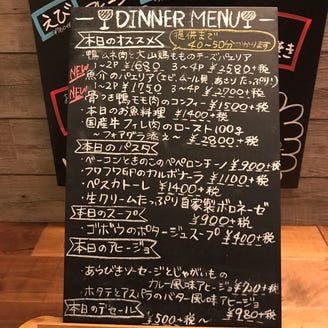 DINNER MENU
本日のオススメ
提供まで
40~50分かかります
鴨ムネ肉と大山鶏もものチーズパエリア
1~2P ¥1680 3~4P ¥2580+税
NEW
魚介のパエリア(エビ、ムール貝、あさりたっぷり)
1~2P ¥1950 3~4P ¥2900+税
NEW
骨つき鴨モモ肉のコンフィー ¥1500+税
・本日のお魚料理 ¥1400+税
国産牛フィレ肉のロースト100g
~フォアグラ添え~ ¥2800+税
本日のパスタ
・ベーコンときのこのペペロンチーノ ¥900+税
・フワフワGFのカルボナーラ ¥1100+税
・ペスカトーレ ¥1400+税
・生クリームたっぷり自家製ボロネーゼ
¥900+税
本日のスープ
・ゴボウのポタージュスープ ¥400+税
本日のアヒージョ
・あらびきソーセージとじゃがいもの
カレー風味アヒージョ ¥920+税
・ホタテとアスパラのバター風味アヒージョ
¥980+税
本日のデセール
¥500+税~
えび